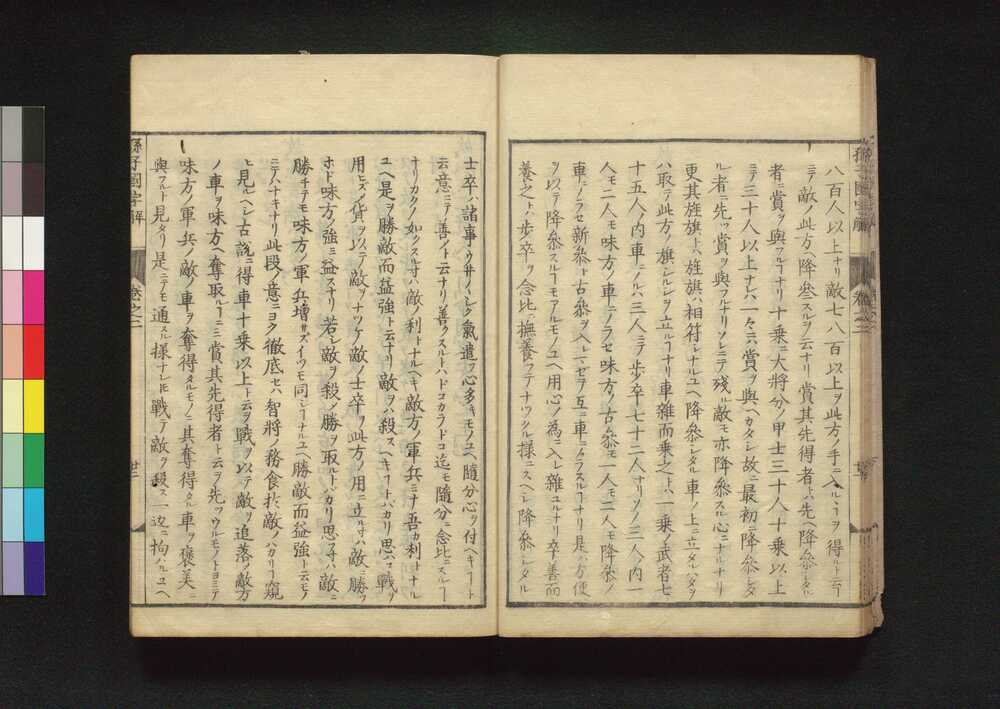 八百人以上ナリ敵七八百以上ヲ此方ノ手ニ入ルヽヿヲ得ルト云
ニテ敵ノ此方ヘ降叅スルヲ云ナリ賞其先得者トハ先ヘ降叅シタル
者ニ賞ヲ與フルヿナリ十乗ニ大將分ノ甲士三十人八十乗以上
ニテ三十人以上ナレハ一々ニハ賞ヲ與ヘカタシ故ニ最初ニ降叅シタ
ル者ニ先ツ賞ヲ與フルナリソレニテ殘ル敵モ亦降叅スル心ニナルナリ
更其旌旗トハ旌旗ハ相符シナルユヘ降叅シタル車ノ上ニ立タルハタヲ
ハ取テ此方ノ旗シルシヲ立ルヿナリ車雜而乗之トハ一乗ノ武者七
十五人ノ内車ニノルハ三人ニテ歩卒七十二人ナリソノ三人ノ内一
人モ二人モ味方ノ車ニノラセ味方ノ古叅モ一人モ二人モ降叅ノ
車ニノラセ新叅ト古叅ヲ入レマゼヲ互ニ車ニノラスルヿナリ是ハ方便
ヲ以テ降叅スルヿモアルモノユヘ用心ノ為ニ入レ雜ユルナリ卒善而
養之トハ歩卒ヲ念比ニ撫養フテナツクル様ニスヘシ降叅シタル
孫子國字解
卷之二
士卒ハ諸事ニウサンハシク氣遣フ心多キモノユヘ隨分心ヲ付ヘキヿト
云意ニテ善ノト云ナリ善クスルトハドコカラドコ迄モ隨分ニ念比ニスルヿ
ナリカクノ如クスル寸ハ敵ノ利トナルヘキ敵方ノ軍兵ミナ吾カ利トナル
ユヘ是ヲ勝敵而益強ト云ナリ敵ヲハ殺スヘキヿトバカリ思フハ戰ノ
用ヒズノ貨ヲ以ニテ敵ヲナツケ敵ノ士卒ヲ此方ノ用ニ立ル寸ハ敵ニ勝ツ
ホド味方ノ強ミ益スナリ若シ敵ヲ殺ノ勝ヲ取ルトバカリ思フ寸ハ敵ニ
勝チテモ味方ノ軍兵増サズイツモ同シヿナルユヘ勝敵而益強ト云モノ
ニテハナキナリ此段ノ意ニヨク徹底セハ智將ノ務食於敵ノハカリヿ窺
ヒ見ルヘシ古說ニ得車十乗以上ト云ヲ戰ヲ以テ敵ヲ追落ノ敵方
ノ車ヲ味方ヘ奪取ルヿニシ賞其先得者ト云ヲ先ツウルモノトヨミテ
味方ノ軍兵ノ敵ノ車ヲ奪得タルモノニ其奪得タル車ヲ褒美ニ
與フルト見タリ是ニテモ通スル様ナレ𪜈戰テ敵ヲ殺ス一邊ニ拘ハルユヘ
孫子國字解
卷之二